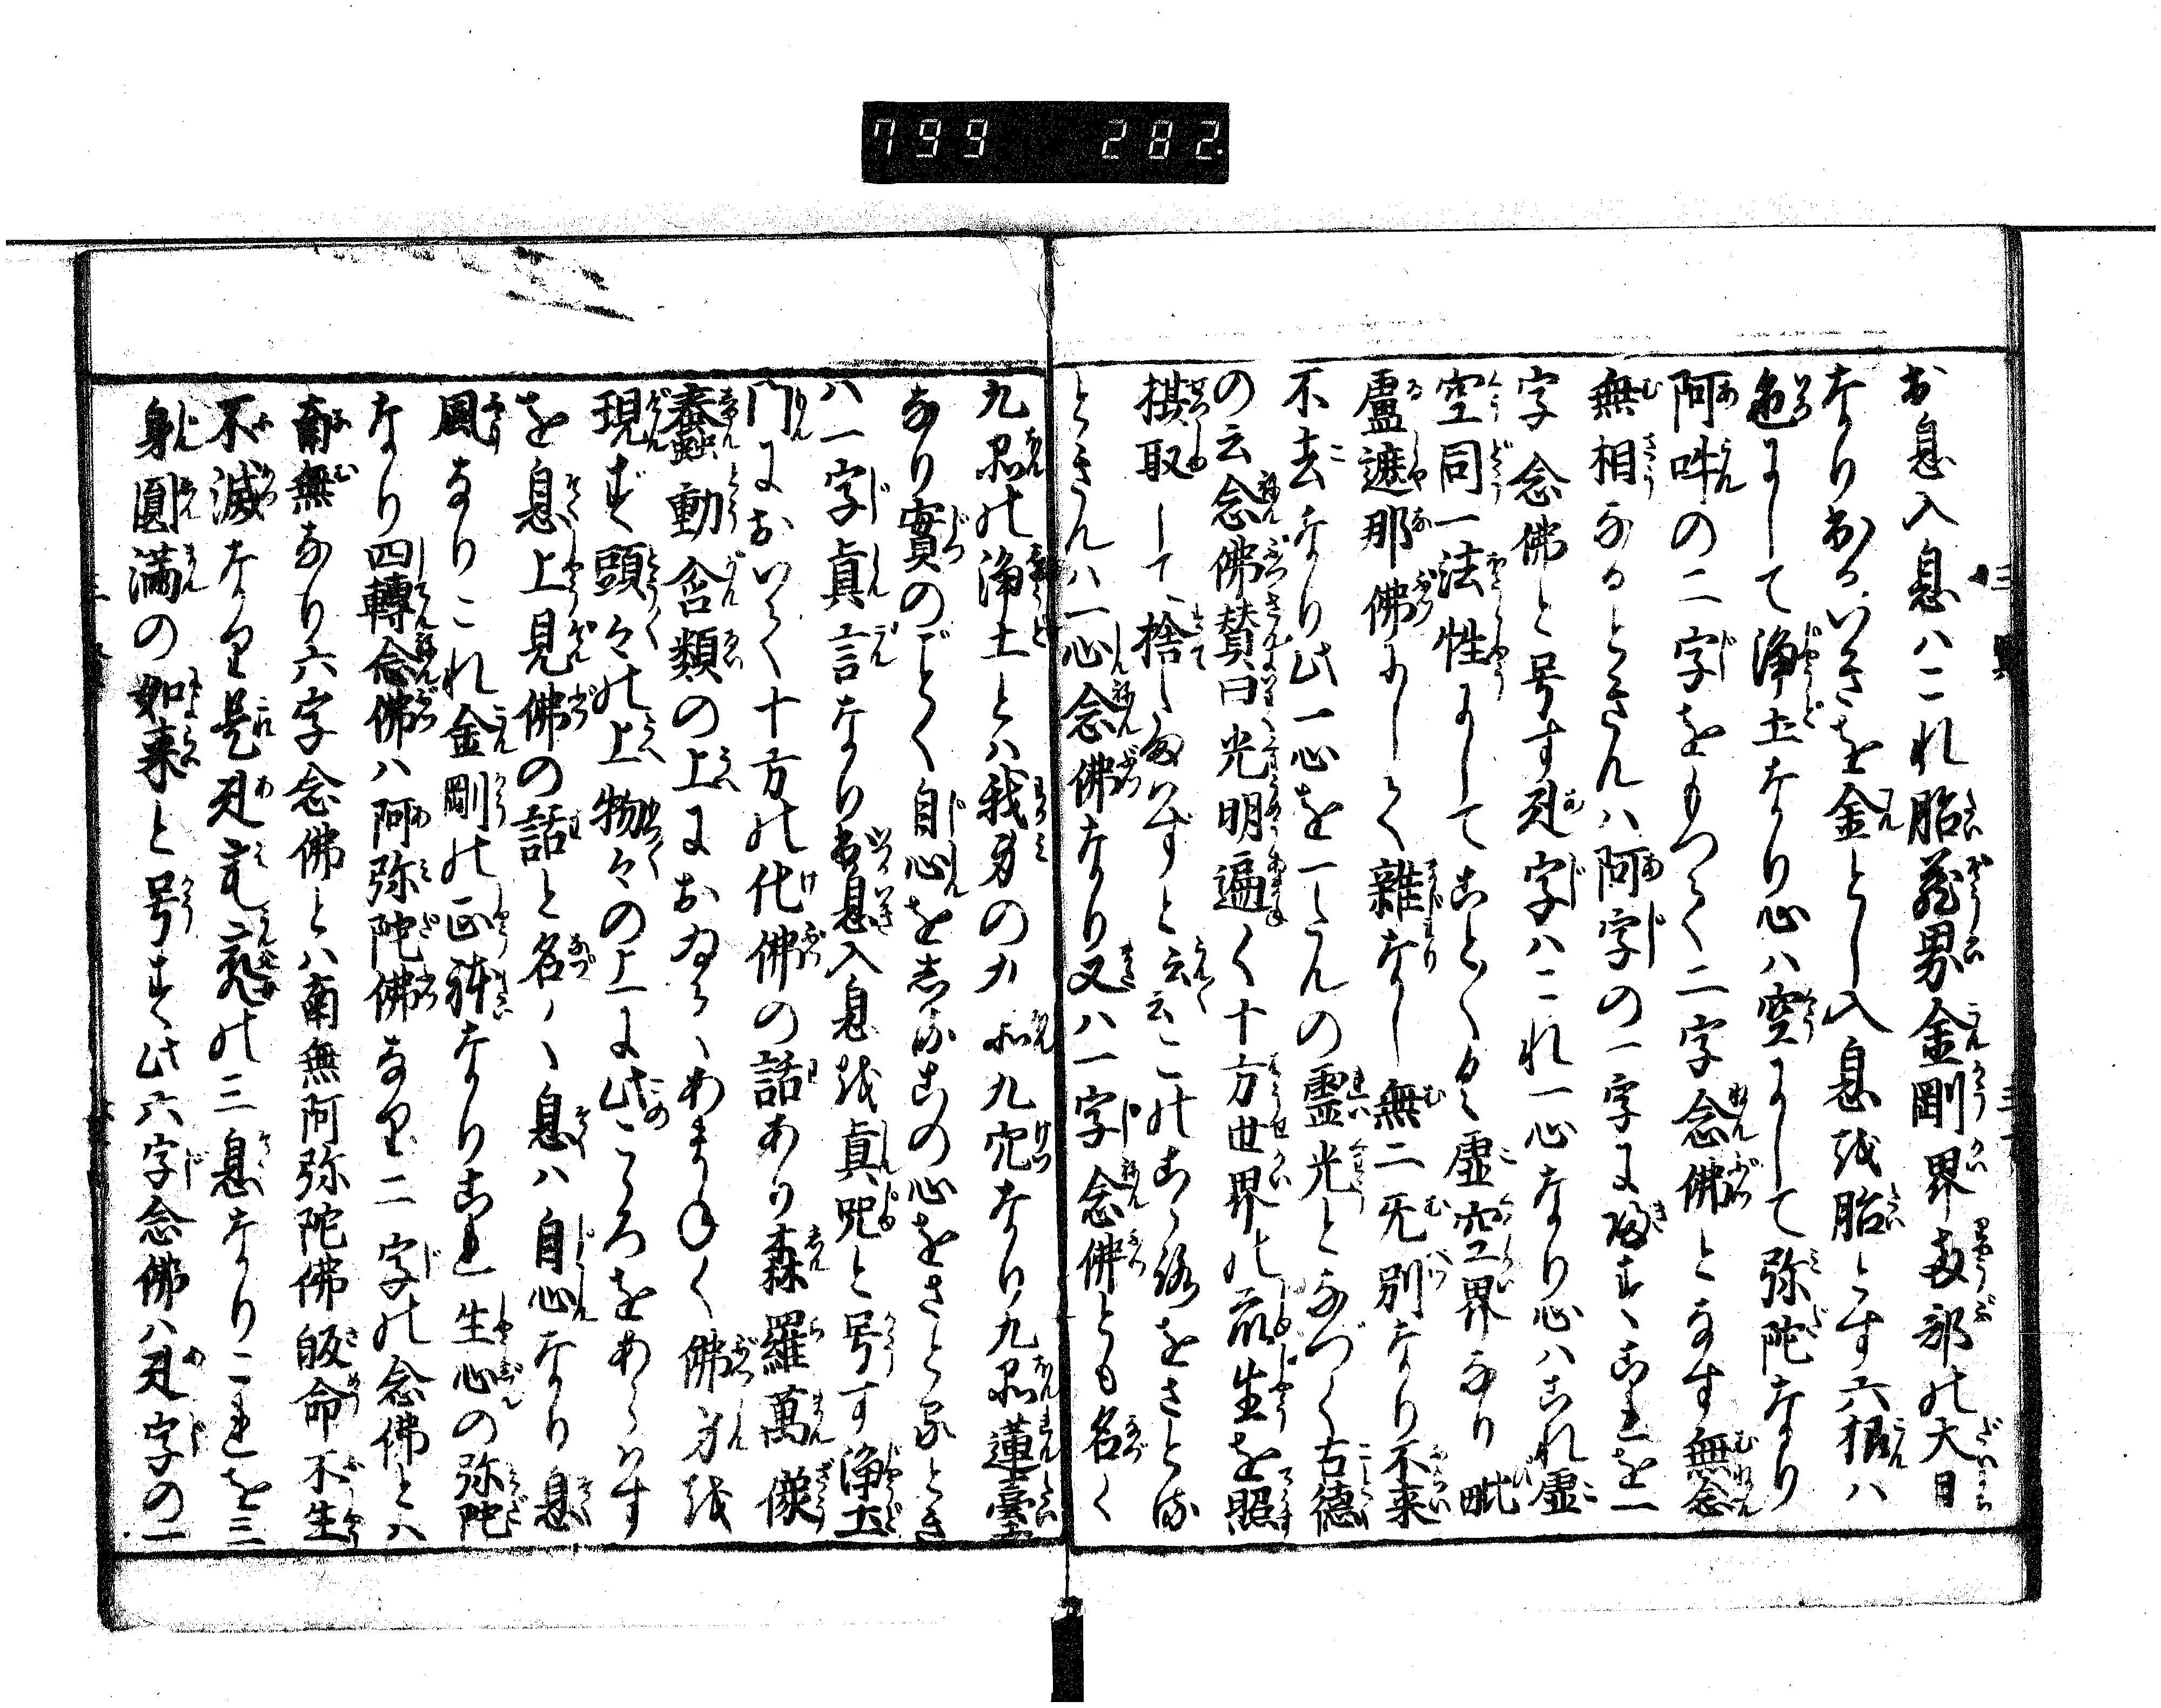 799 282
出息入息ハこれ胎蔵界金剛界両部の大日
なり出るいきを金とし入息を胎とす六根ハ
色にして浄土なり心ハ空にして弥陀なり
阿吽の二字をもつて二字念佛となす無念
無相なるときんハ阿字の一字に帰すこれを一
字念佛と号す字ハこれ一心なり心ハこれ虚
空同一法性にしてことく虚空界なり毗
盧遮那佛にして雜なし無二无別なり不来
不去なり此一心を一さんの霊光となづく古徳
の云念佛賛曰光明遍く十方世界の衆生を照
摂取して捨たまハずと云云このこゝろをさとる
ときんハ一心念佛なり又ハ一字念佛とも名く
九品の浄土とハ我身の九穴なり九品蓮臺
なり實のごとく自心をしるこの心をさとるとき
ハ一字真言なり出息入息を真呪と号す浄土
門においてハ十方の化佛の話あり森羅萬像
蠢動含類の上においてハあまねく佛身を
現ず頭々の上物々の上に此こころをあらハす
を息上見佛の話と名く息ハ自心なり息
風なりこれ金剛の正体なりこれ生心の弥陀
なり四轉念佛ハ阿弥陀佛なり二字の念佛とハ
南無なり六字念佛とハ南無阿弥陀佛皈命不生
不滅なり是の三息なりこれを三
身圓満の如来と号す此六字念佛ハ字の一